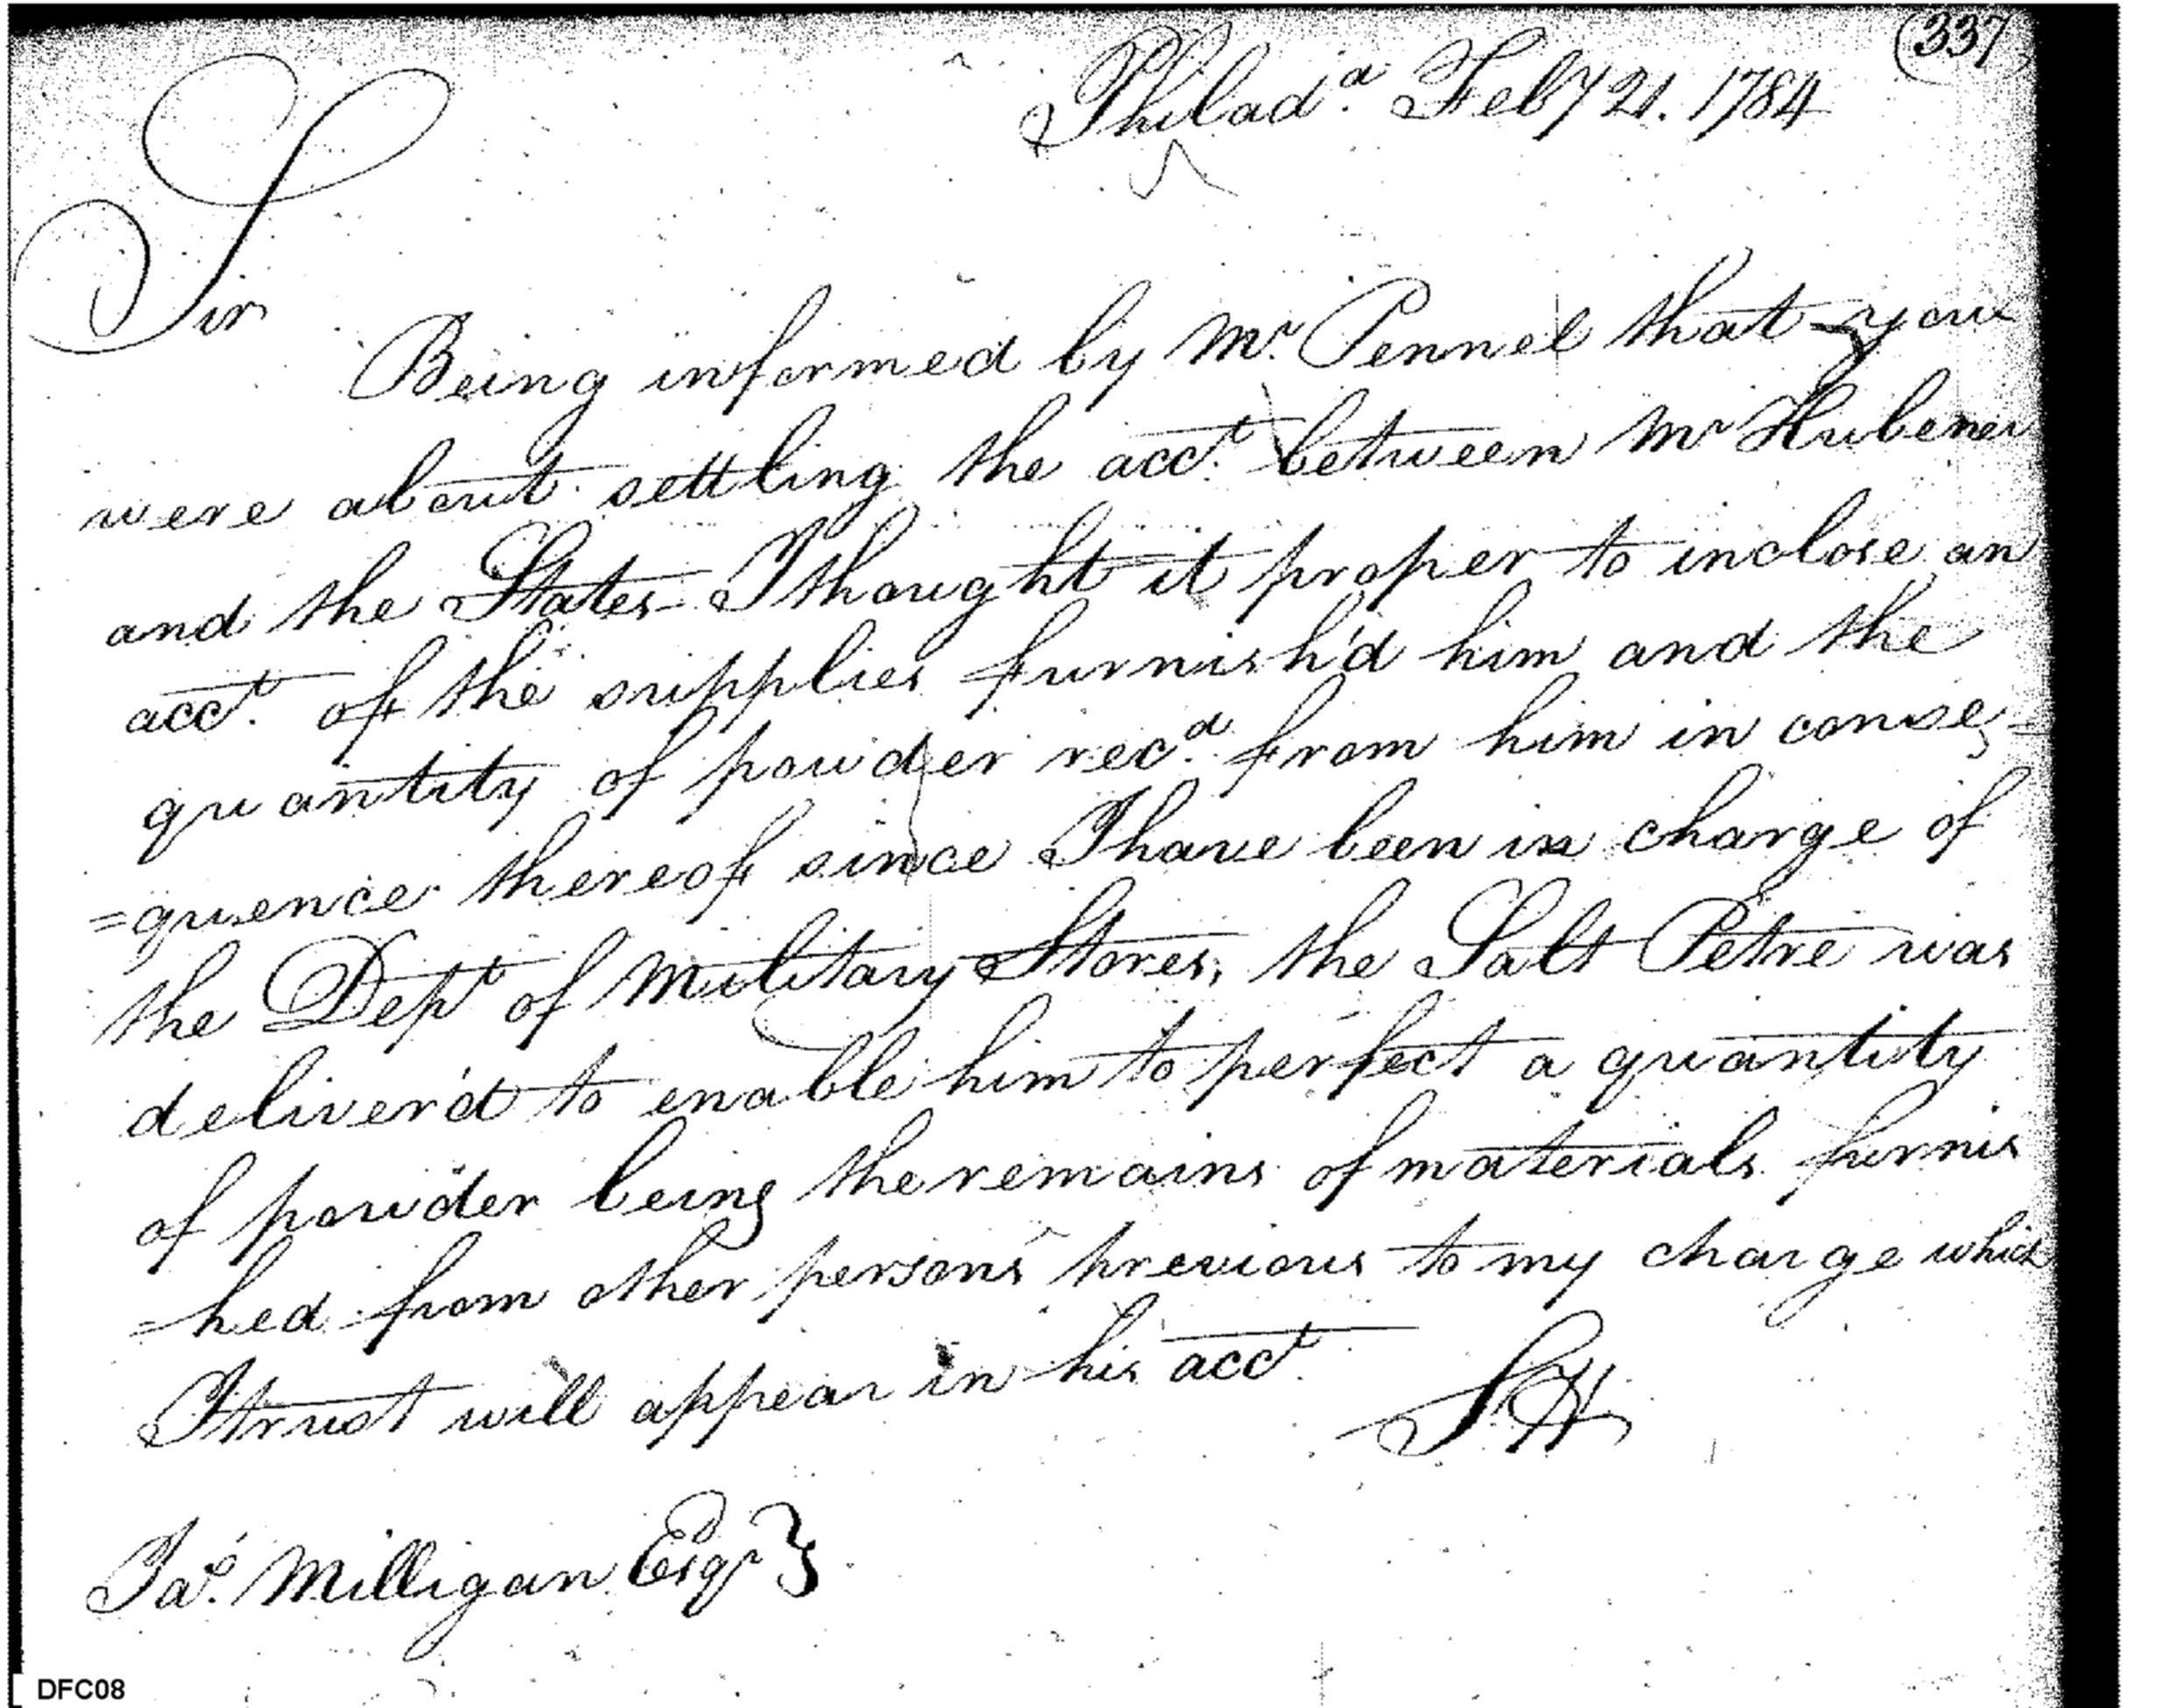 (337)
Philad.ª Feby 21. 1784
Sir
Being informed by Mr. Pennel that you
were about settling the acct. between Mr Hubener
and the States I thought it proper to inclose an
acct. of the supplies furnish'd him and the
quantity of powder recd. from him in conse=
=quence thereof since I have been in charge of
the Dept of Military Stores, the Salt Petre was
deliver'd to enable him to perfect a quantity
of powder being the remains of materials furnis
=hed from other persons previous to my charge which
I trust will appear in his acct.
S.H
Jas. Milligan Esqr }
DFC08